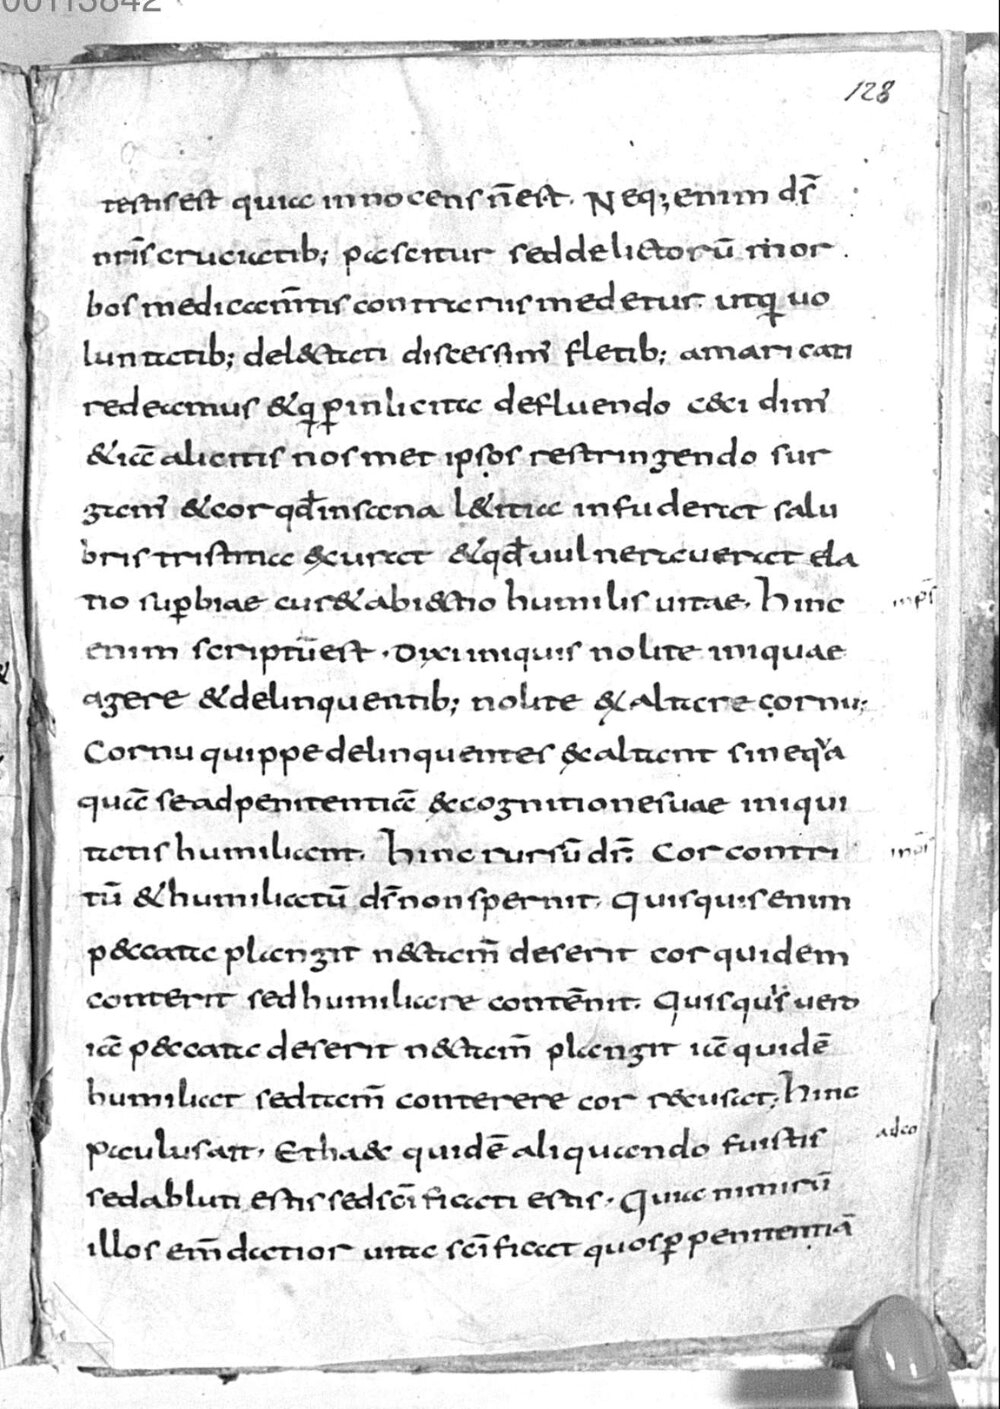 00113842
128
testis est quia innocens n̄ est. Neq; enim d̄s
nr̄is cruciatib; pascitur sed delictorū mor
bos medicam̄tis contrariis medetur. ut qui uo
luntatib; delectati discessim' fletib; amaricati
redeamus & qui p̱ inlicita defluendo cecidim'
&iā a licitis nosmet ipsos restringendo sur
gam' & cor qd̄ insana l&itia infuderat salu
bris tristitia &curat & qd̄ uulnerauerat ela
tio sup̱biae cur& abiectio humilis uitae. Hinc
inps̄
enim scriptū est. Dixi iniquis nolite inique
agere & delinquentib; nolite &altare cornu;
Cornu quippe delinquentes &altant si neq̇a
quā se ad penitentiā &cognitione suae iniqui
tatis humiliant. Hinc rursū dr̄: Cor contri
inps̄
tū & humiliatū d̄s non spernit. Quisquis enim
p&cata plangit n& tam̄ deserit cor quidem
conterit sed humiliare contēnit. Quisquis uero
iā p&cata deserit n& tam̄ plangit iā quidē
humiliat sed tam̄ conterere cor r&cusat; Hinc
paulus ait. Et haec quidē aliquando fuistis
ad co
sed abluti estis sed sc̄ificati estis. Quia nimirū
illos em̄datior uita sc̄ificat quos p̱ penitentiā